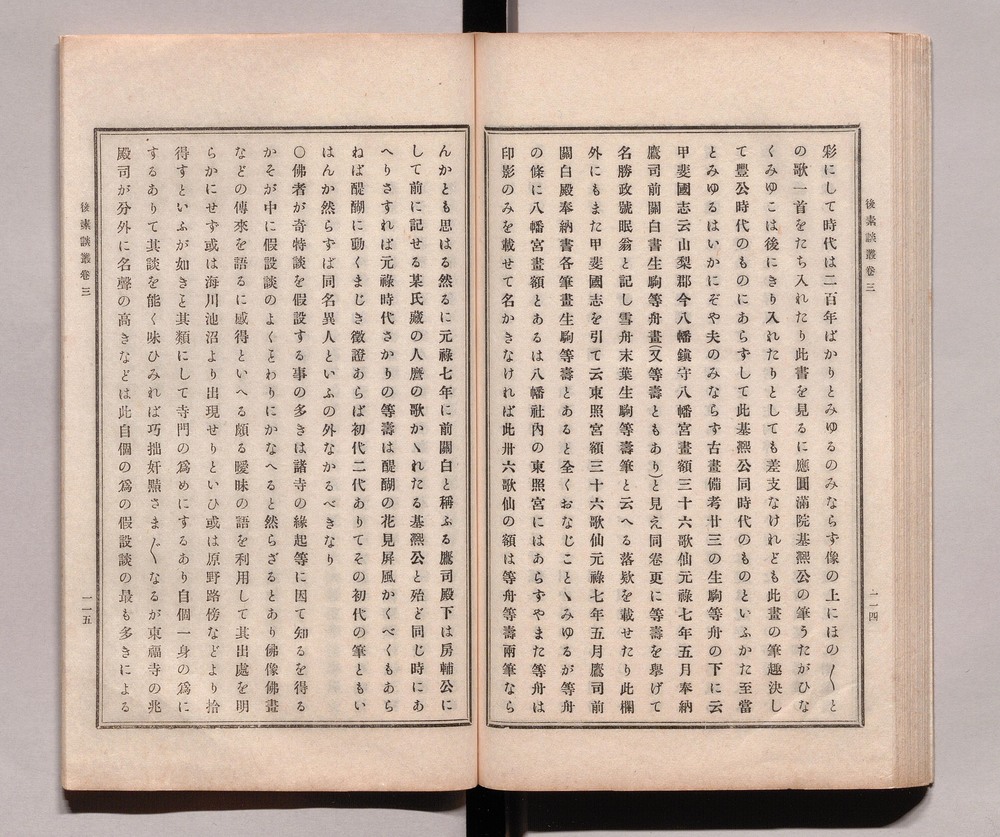 後素談叢卷三
一一四
彩にして時代は二百年ばかりとみゆるのみならす像の上にほの〱と
の歌一首をたち入れたり此書を見るに應圓滿院基凞公の筆うたがひな
くみゆこは後にきり入れたりとしても差支なけれども此畫の筆趣決し
て豐公時代のものにあらすして此基凞公同時代のものといふかた至當
とみゆるはいかにぞや夫のみならす古畫備考廿三の生駒等舟の下に云
甲斐國志云山梨郡今八幡鎭守八幡宮畫額三十六歌仙元祿七年五月奉納
鷹司前關白書生駒等舟畫(又等壽ともあり)と見え同卷更に等壽を擧げて
名勝政號眠翁と記し雪舟末葉生駒等壽筆と云へる落欵を載せたり此欄
外にもまた甲斐國志を引て云東照宮額三十六歌仙元祿七年五月鷹司前
關白殿奉納書各筆畫生駒等壽とあると全くおなじことゝみゆるが等舟
の條に八幡宮畫額とあるは八幡社內の東照宮にはあらすやまた等舟は
印影のみを載せて名かきなければ此卅六歌仙の額は等舟等壽兩筆なら
んかとも思はる然るに元祿七年に前關白と稱ふる鷹司殿下は房輔公に
して前に記せる某氏藏の人麿の歌かゝれたる基凞公と殆ど同じ時にあ
へりさすれば元祿時代さかりの等壽は醍醐の花見屏風かくべくもあら
ねば醍醐に動くまじき徵證あらば初代二代ありてその初代の筆ともい
はんか然らすば同名異人といふの外なかるべきなり
〇佛者が奇特談を假設する事の多きは諸寺の緣起等に因て知るを得る
かそが中に假設談のよくとわりにかなへると然らざるとあり佛像佛畫
などの傳來を語るに感得といへる頗る曖昧の語を利用して其出處を明
らかにせず或は海川池沼より出現せりといひ或は原野路傍などより拾
得すといふが如きと其類にして寺門の爲めにするあり自個一身の爲に
するありて其談を能く味ひみれば巧拙奸黠さま〲なるが東福寺の兆
殿司が分外に名聲の高きなどは此自個の爲の假設談の最も多きによる
後素談叢卷三
一一五